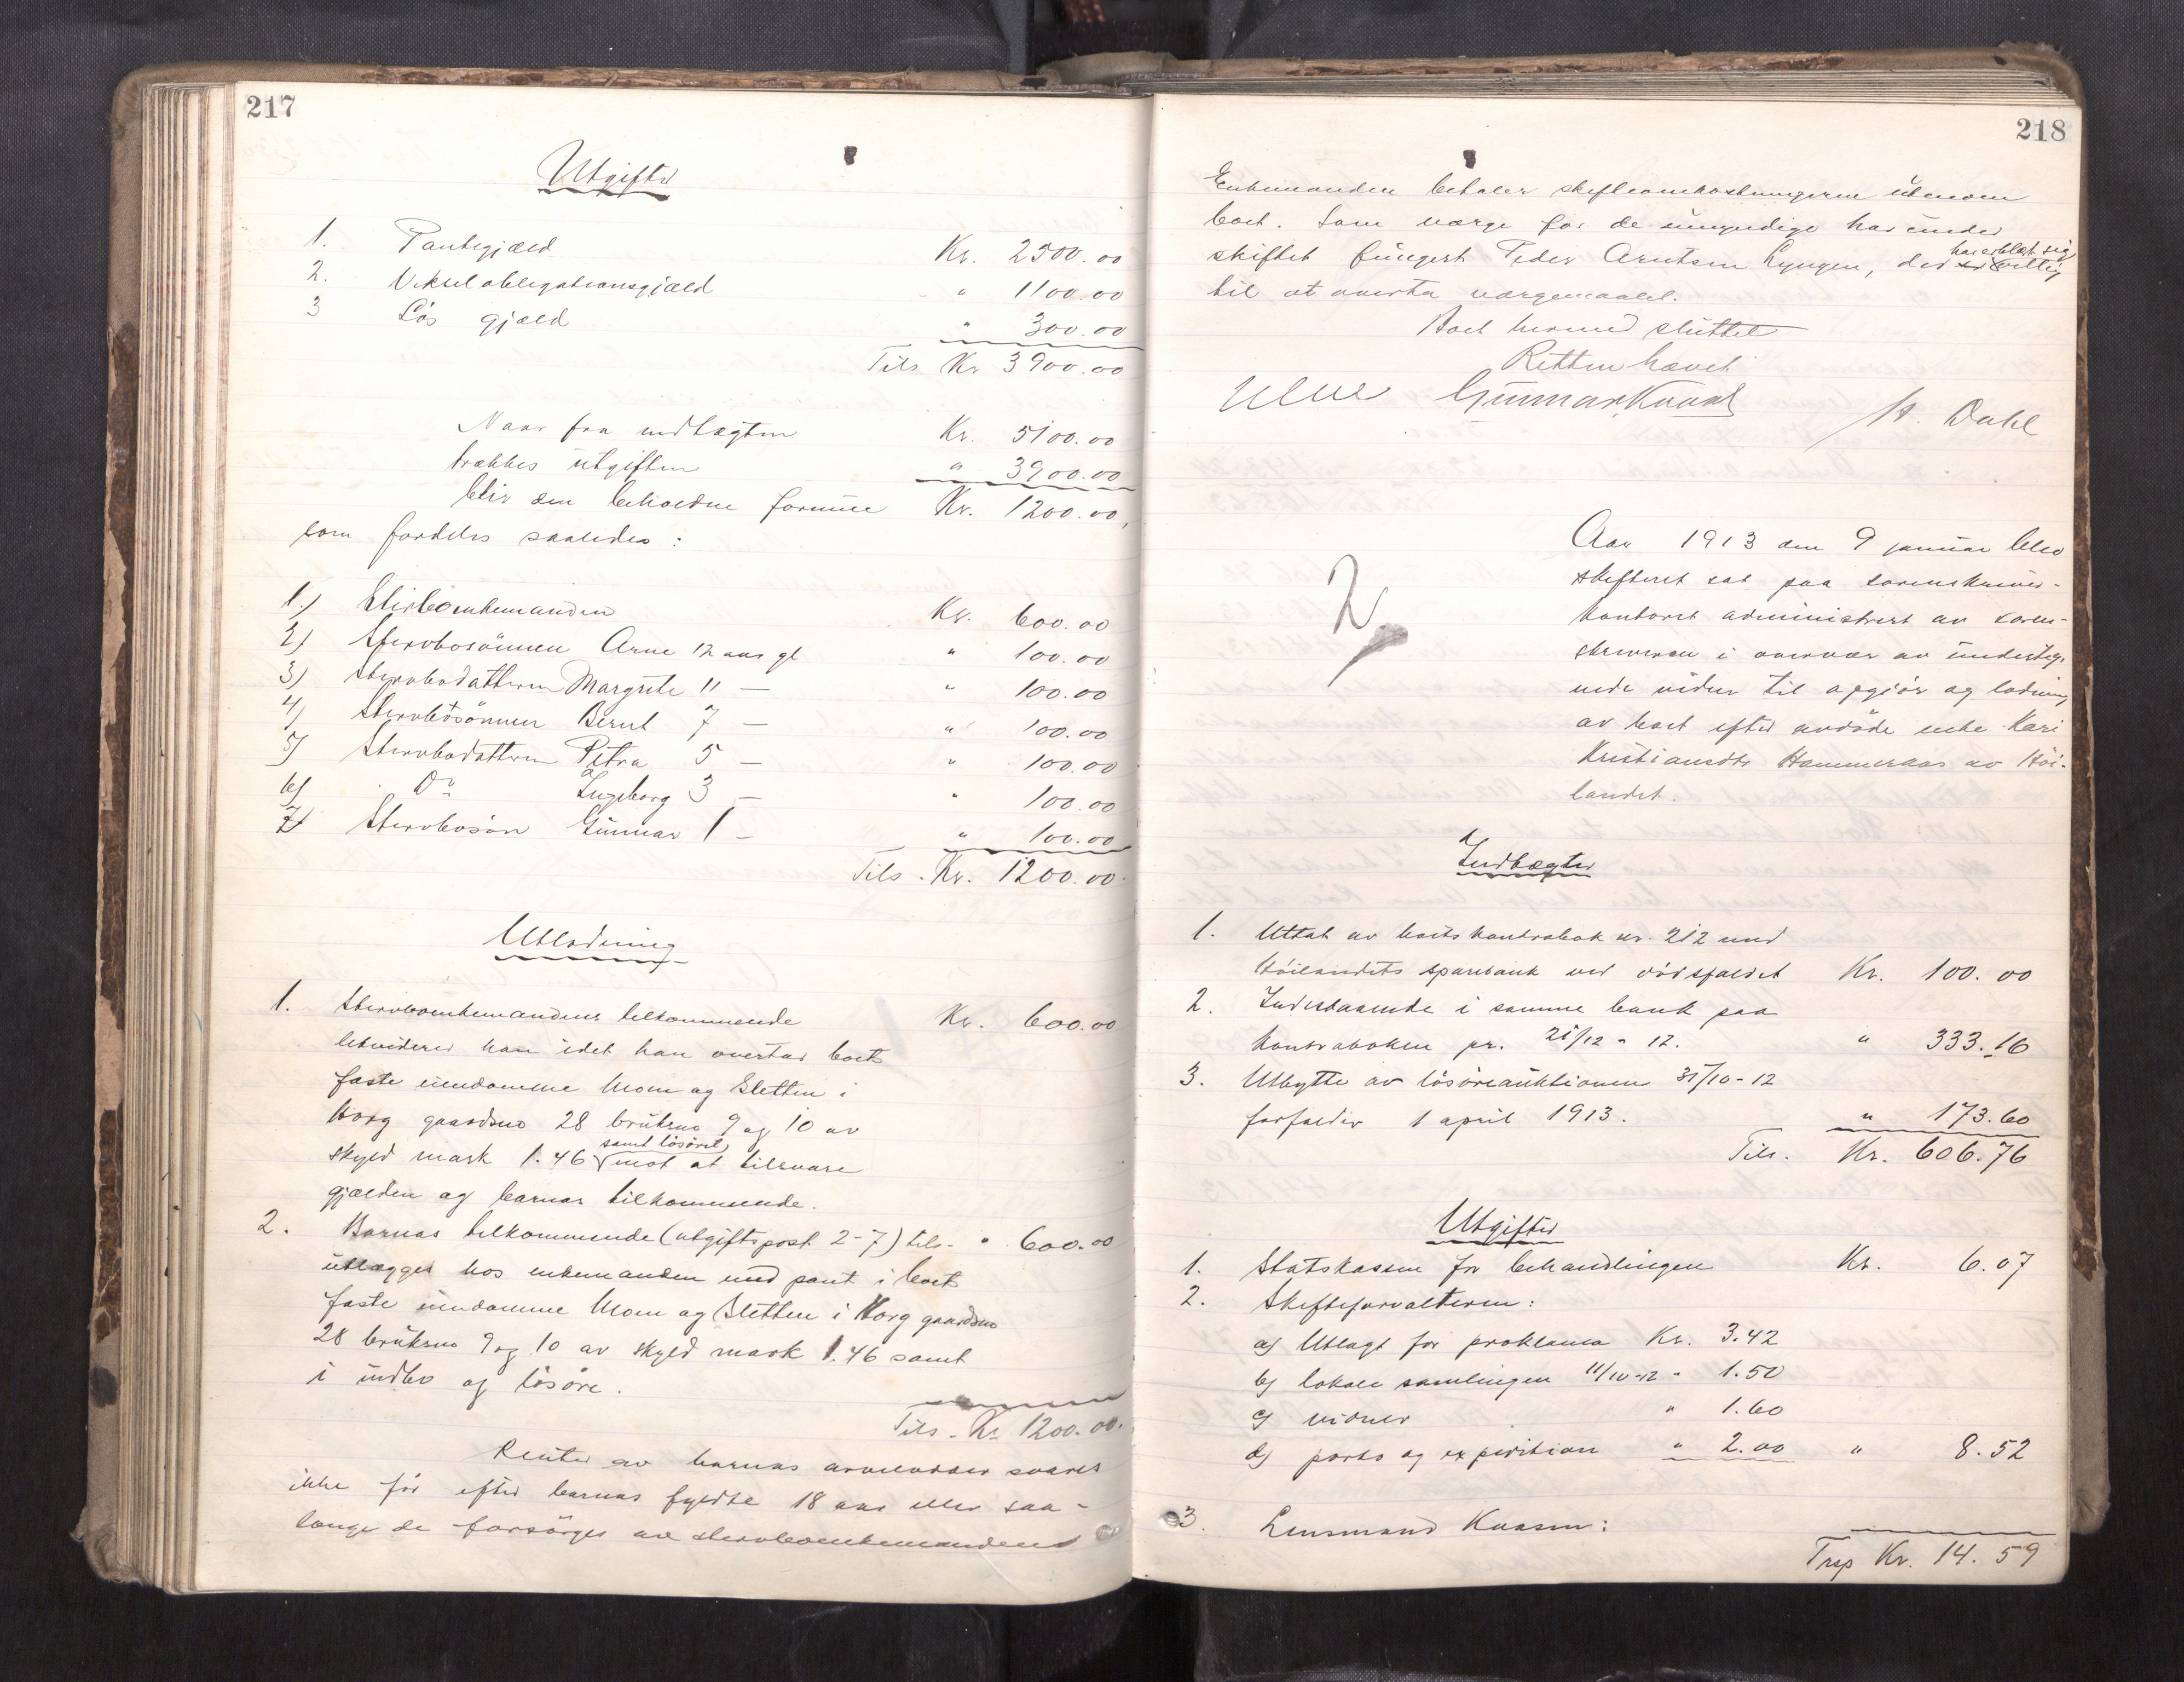 217
Utgifter
1. Pantegjæld Kr. 2500.00
2. Vekselobligationsgjæld " 1100.00
3 Løs gjæld " 300.00
Tils Kr 3900.00
Naar fra indtægten Kr. 5100.00
trækkes utgiften " 3900.00
blir den beholdne formue Kr. 1200.00,
som fordeles saaledes:
1.) Stervboenkemanden Kr. 600.00
2) Stervbosönnen Arne 12 aar gl " 100.00
3) Stervbodatteren Margrete 11 — " 100.00
4) Stervbosönnen Bernt 7 — " 100.00
5) Stervbodatteren Petra 5 — " 100.00
6) Do Ingeborg 3 — " 100.00
7) Stervbosön Gunnar 1 — " 100.00
Tils. Kr. 1200.00
Utlodning
1. Stervboenkemandens tilkommende Kr. 600.00
likviderer han idet han overtar boets
faste eiendomme Mom og Sletten i
Horg gaardsno 28 bruksno 9 og 10 av
skyld mark 1.46 samt lösöret mot at tilsvare
gjælden og barnas tilkommende.
2. Barnas tilkommende (utgiftspost 2-7) tils. " 600.00
utlægges hos enkemanden med pant i boets
faste eiendomme Mom og Sletten i Horg gaardsno
28 bruksno 9 og 10 av skyld mark 1.46 samt
i indbo og lösöre.
Tils. Kr 1200.00.
Renter av barnas arvelodder svares
ikke för efter barnas fyldte 18 aar eller saa-
længe de forsörges av stervboenkemanden
218
Enkemanden betaler skifteomkostningerne utenom
boet. Som verge for de umyndige har under
skiftet fungert Peder Arntsen Lyngen, der har erklært sig villig
til at overta vergemaalet.
Boet hermed sluttet
Retten hævet
Ulve Gunnar Kvaal H. Dahl
2
Aar 1913 den 9 januar blev
skifteret sat paa sorenskriver-
kontoret administrert av soren-
skriveren i overvær av underteg-
nede vidner til opgjör og lodning
av boet efter avdöde enke Kari
Kristiansdtr Hammeraas av Höi-
landet.
Indtægter
1. Uttat av boets kontrabok nr. 212 med
Höilandets sparebank ved dödsfaldet Kr. 100.00
2. Indestaaende i samme bank paa
kontraboken pr. 21/12 - 12. " 333.16
3. Utbytte av lösöreauktionen 31/10-12
forfalder 1 april 1913. " 173.60
Tils. Kr. 606.76
Utgifter
1. Statskassen for behandlingen Kr. 6.07
2. Skifteforvalteren:
a) Utlagt for proklama Kr. 3.42
b) lokale samlingen 11/10-12 " 1.50
c) vidner " 1.60
d) porto og expedition " 2.00 " 8.52
3. Lensmand Kvasm:
Trsp Kr. 14.59